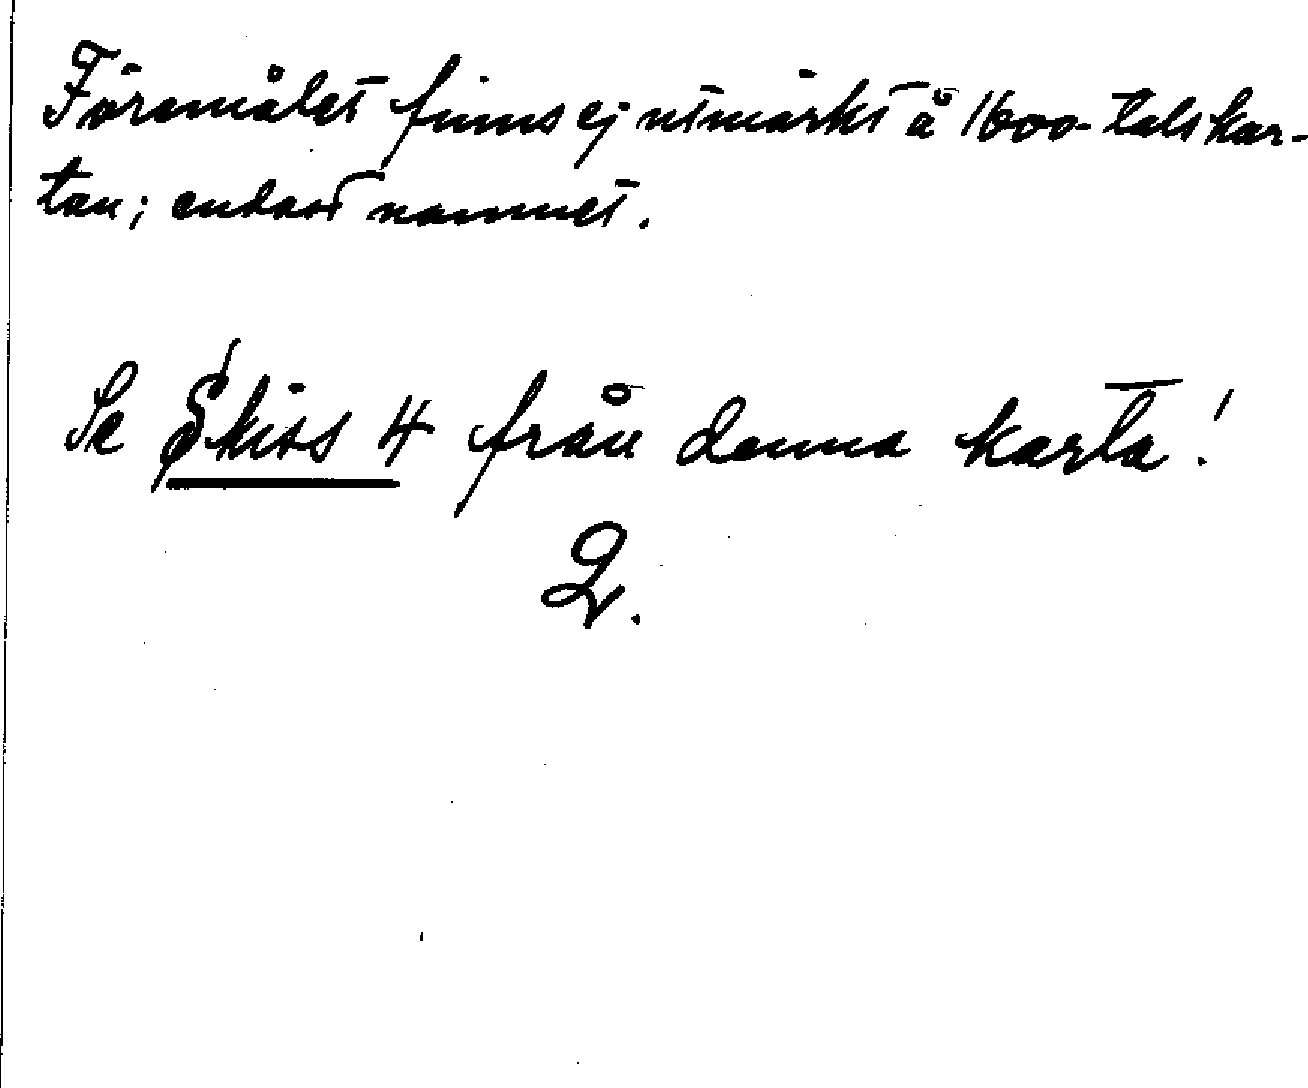 Föremålet finns ej utmärkt å 1600-talskar-
tan; endast namnet.
Se Skiss 4 från denna karta!
2.